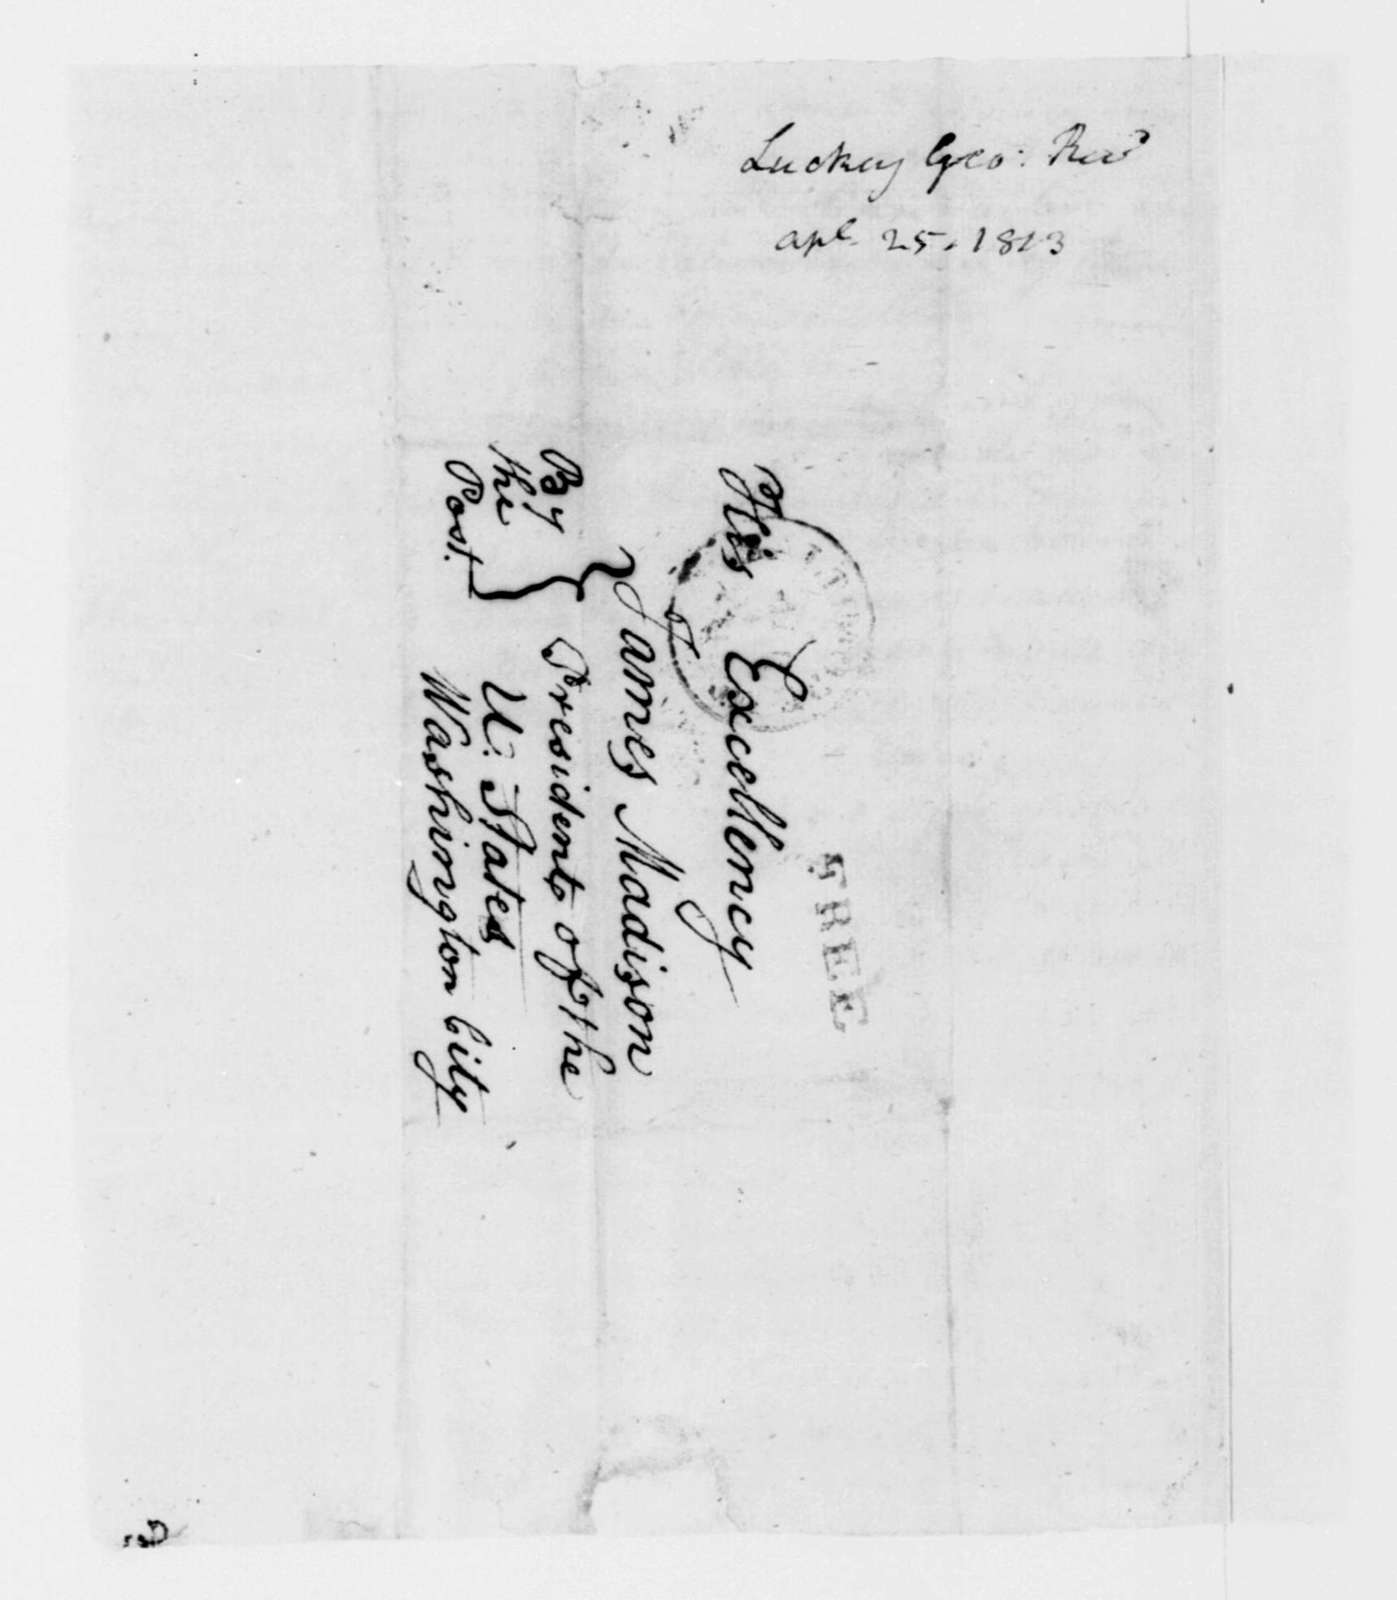 Luckey Geo: Revd
apl. 25. 1813
FREE.
His Excellency
James Madison
President of the
U. States
Washington City
By
the
Post.